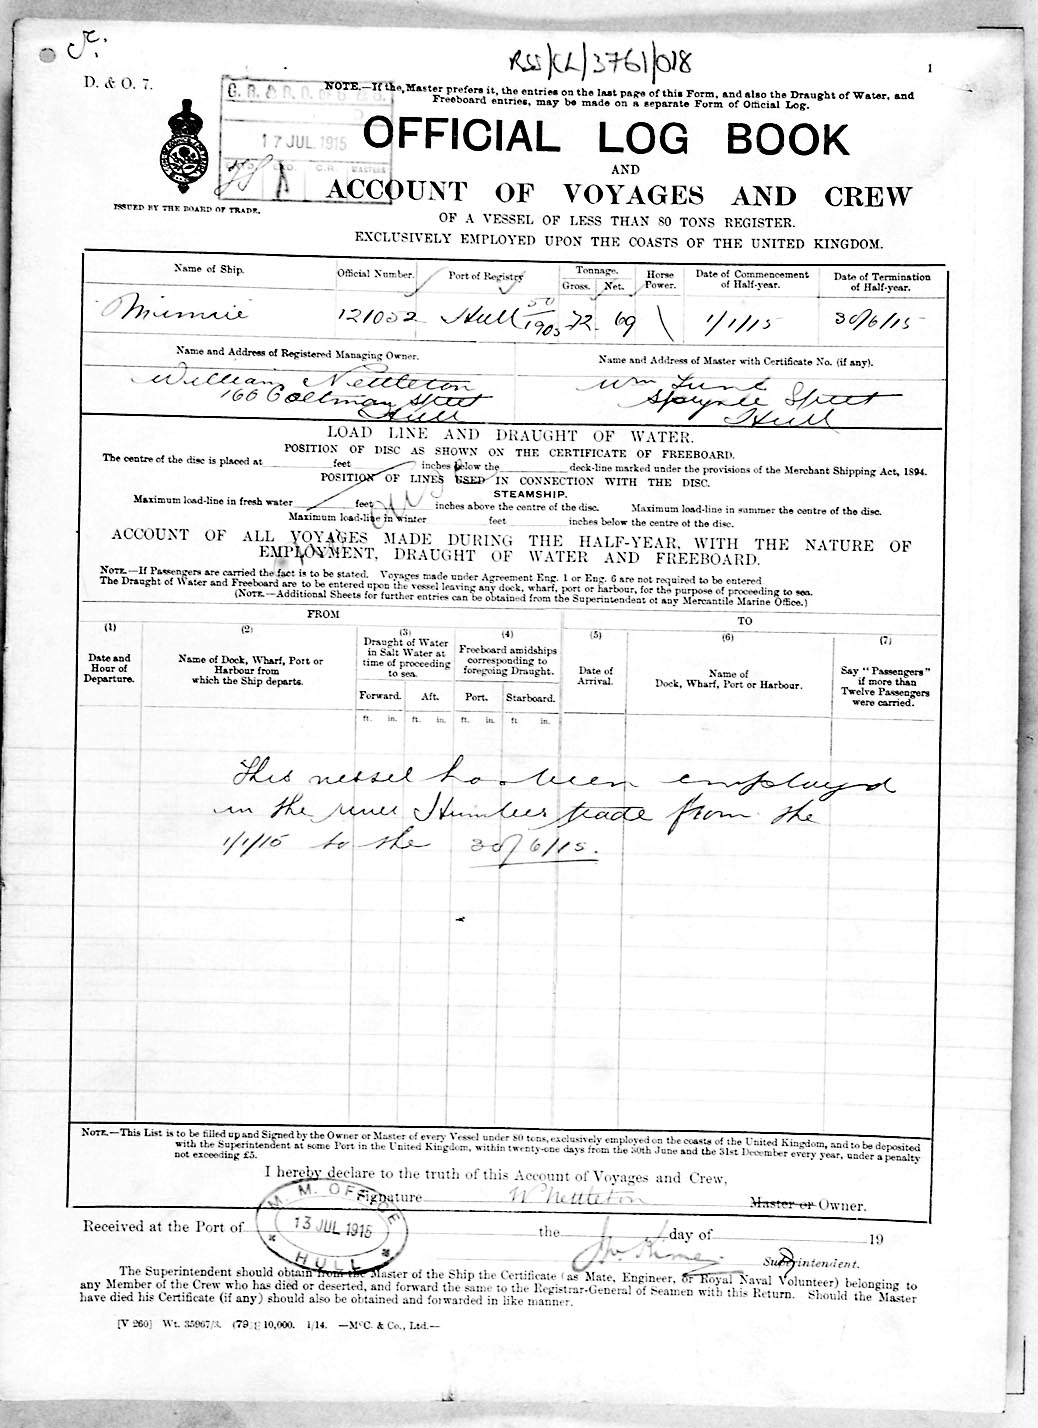 RSS/CL/3761/018
1
D. & O. 7.
NOTE.—If the Master prefers it, the entries on the last page of this Form, and also the Draught of Water, and
Freeboard entries, may be made on a separate Form of Official Log.
17 JUL 1915
OFFICIAL LOG BOOK
AND
ACCOUNT OF VOYAGES AND CREW
ISSUED BY THE BOARD OF TRADE.
OF A VESSEL OF LESS THAN 80 TONS REGISTER.
EXCLUSIVELY EMPLOYED UPON THE COASTS OF THE UNITED KINGDOM.
Name of Ship. Official Number. Port of Registry Tonnage. Horse Power. Date of Commencement of Half-year. Date of Termination of Half-year.
Gross. Net.
Minnie 121052 Hull 50/1905 72 69 1/1/15 30/6/15
Name and Address of Registered Managing Owner. Name and Address of Master with Certificate No. (if any).
William Nettleton Wm
166 Street Street
Hull Hull
LOAD LINE AND DRAUGHT OF WATER.
POSITION OF DISC AS SHOWN ON THE CERTIFICATE OF FREEBOARD.
The centre of the disc is placed at feet inches below the deck-line marked under the provisions of the Merchant Shipping Act, 1894.
POSITION OF LINES USED IN CONNECTION WITH THE DISC.
STEAMSHIP.
Maximum load-line in fresh water feet inches above the centre of the disc. Maximum load-line in summer the centre of the disc.
Maximum load-line in winter feet inches below the centre of the disc.
ACCOUNT OF ALL VOYAGES MADE DURING THE HALF-YEAR, WITH THE NATURE OF
EMPLOYMENT, DRAUGHT OF WATER AND FREEBOARD.
NOTE.—If Passengers are carried the fact is to be stated. Voyages made under Agreement Eng. 1 or Eng. 6 are not required to be entered
The Draught of Water and Freeboard are to be entered upon the vessel leaving any dock, wharf, port or harbour, for the purpose of proceeding to sea.
(NOTE.—Additional Sheets for further entries can be obtained from the Superintendent of any Mercantile Marine Office.)
FROM TO
(1) (2) (3) (4) (5) (6) (7)
Date and Hour of Departure. Name of Dock, Wharf, Port or Harbour from which the Ship departs. Draught of Water in Salt Water at time of proceeding to sea. Freeboard amidships corresponding to foregoing Draught. Date of Arrival. Name of Dock, Wharf, Port or Harbour. Say "Passengers" if more than Twelve Passengers were carried.
Forward. Aft. Port. Starboard.
ft. in. ft. in. ft. in. ft in.
This vessel has been employed
in the river Humber trade from the
1/1/15 to the 30/6/15.
NOTE.—This List is to be filled up and Signed by the Owner or Master of every Vessel under 80 tons, exclusively employed on the coasts of the United Kingdom, and to be deposited
with the Superintendent at some Port in the United Kingdom, within twenty-one days from the 30th June and the 31st December every year, under a penalty
not exceeding £5.
I hereby declare to the truth of this Account of Voyages and Crew,
Signature W Nettleton Master or Owner.
M. M. OFFICE
13 JUL 1915
HULL
Received at the Port of the day of 19
Superintendent.
The Superintendent should obtain from the Master of the Ship the Certificate (as Mate, Engineer, or Royal Naval Volunteer) belonging to
any Member of the Crew who has died or deserted, and forward the same to the Registrar-General of Seamen with this Return. Should the Master
have died his Certificate (if any) should also be obtained and forwarded in like manner.
[V 260] Wt. 35967/3. (79 10,000. 1/14. —McC. & Co., Ltd.—